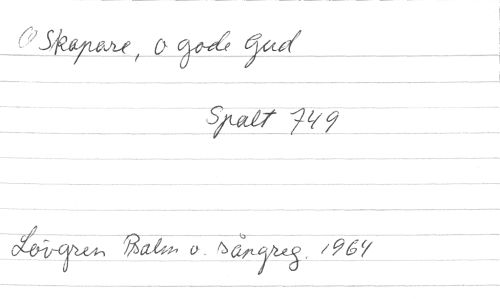 O Skapare, o gode Gud
Spalt 749
Lövgren Psalm o. sångreg. 1964